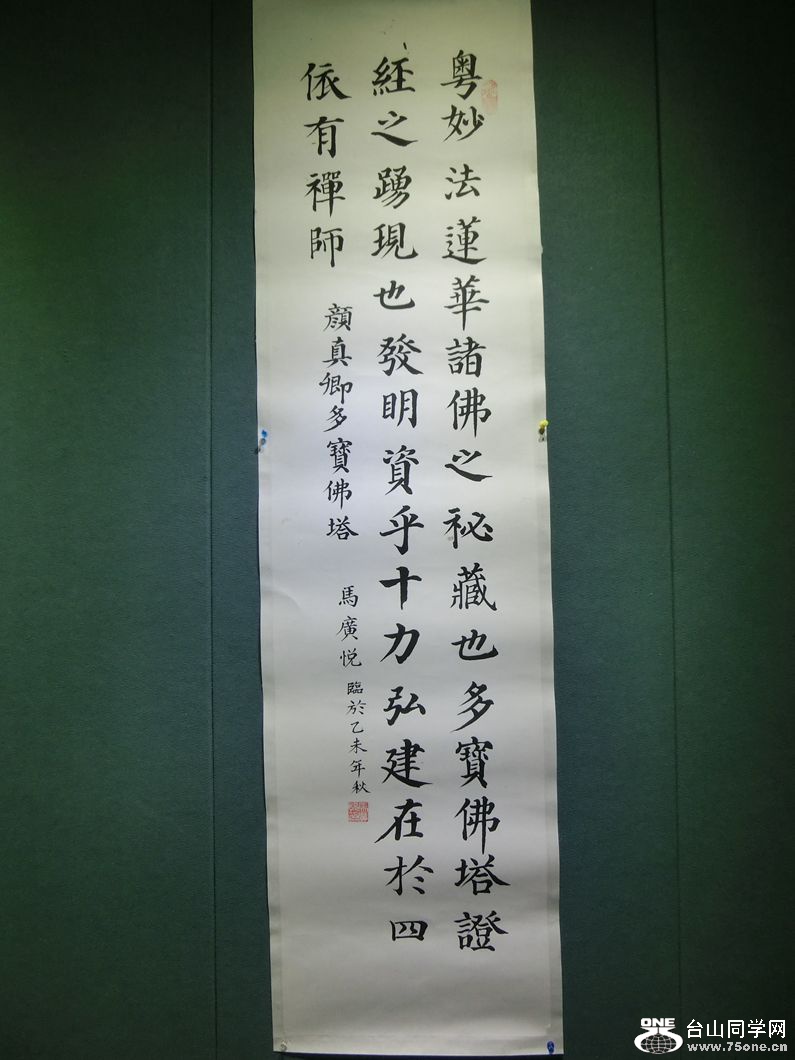 粤妙法蓮華諸佛之祕藏也多寶佛塔證
經之踴現也發明資乎十力弘建在於四
依有禪師
顏真卿多寶佛塔
馬廣悦臨於乙未年秋
ONE
台山同学网
www.75one.cn